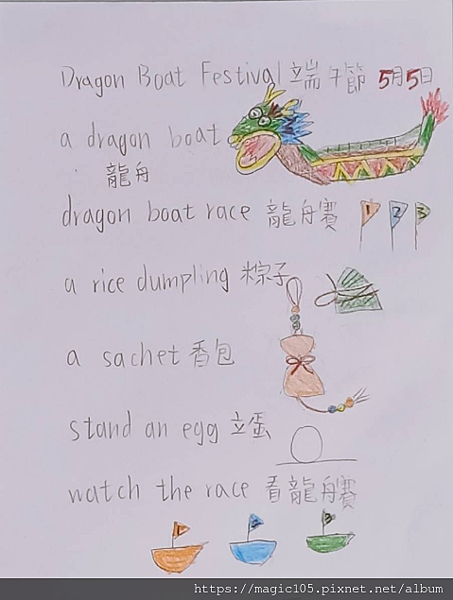 Dragon Boat Festival 端午節 5月5日
a dragon boat
龍舟
dragon boat race 龍舟賽 1 2 3
a rice dumpling 粽子
a sachet 香包
stand an egg 立蛋
watch the race 看龍舟賽
1 2 3
https://magic105.pixnet.net/album